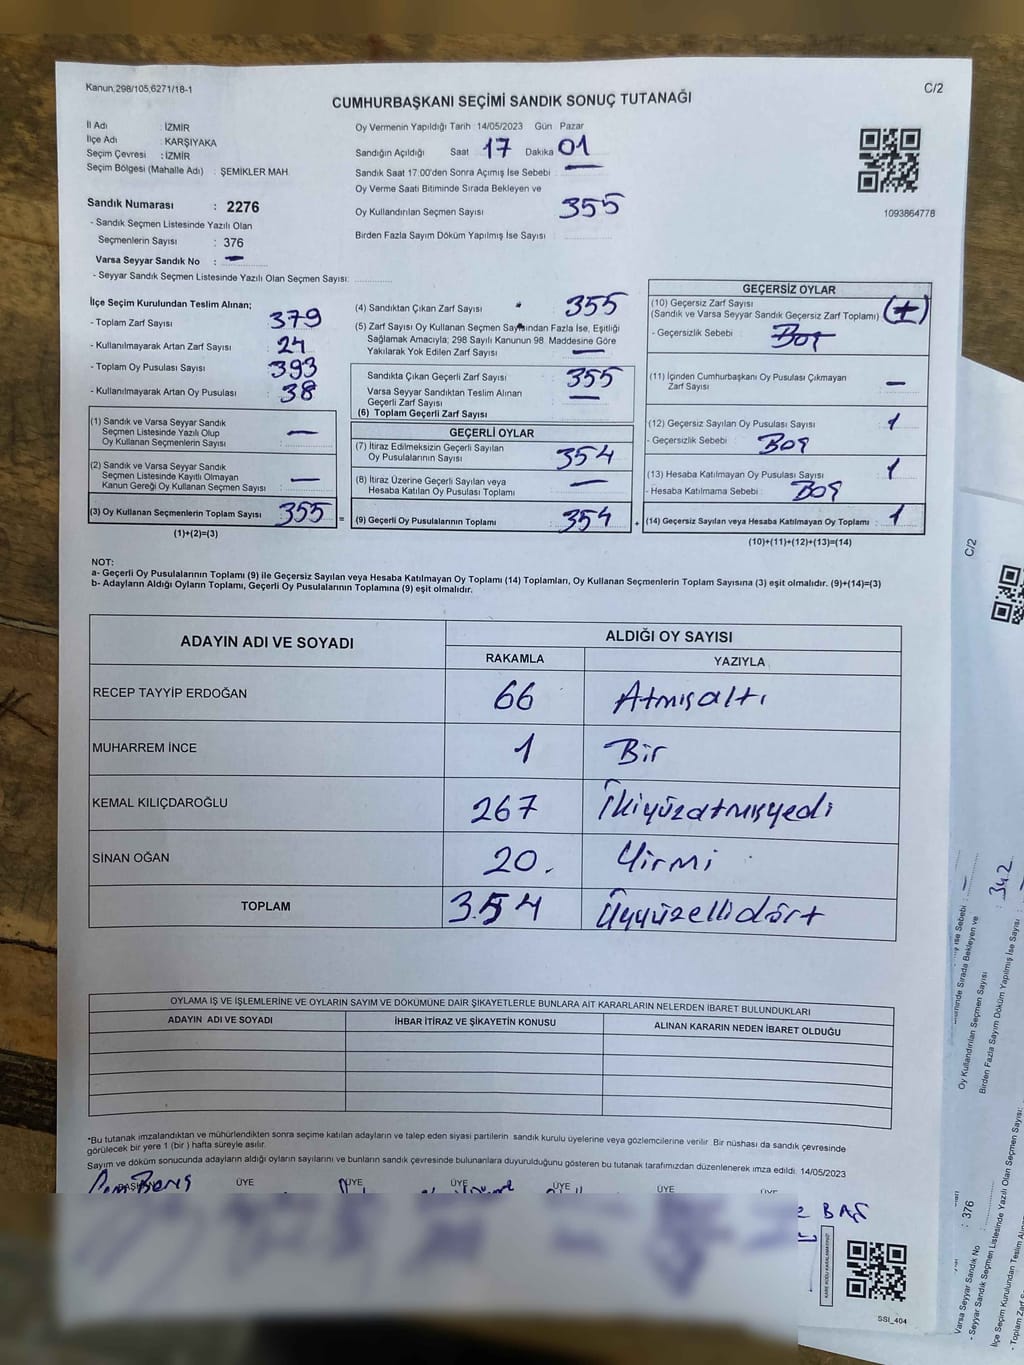 Kanun.298/105,6271/18-1
C/2
CUMHURBAŞKANI SEÇİMİ SANDIK SONUÇ TUTANAĞI
İl Adı : İZMİR
İlçe Adı : KARŞIYAKA
Seçim Çevresi : İZMİR
Seçim Bölgesi (Mahalle Adı) : ŞEMİKLER MAH.
Sandık Numarası : 2276
- Sandık Seçmen Listesinde Yazılı Olan
Seçmenlerin Sayısı : 376
Varsa Seyyar Sandık No : -
- Seyyar Sandık Seçmen Listesinde Yazılı Olan Seçmen Sayısı:
Oy Vermenin Yapıldığı Tarih :14/05/2023 Gün Pazar
Sandığın Açıldığı Saat 17 Dakika 01
Sandık Saat 17:00'den Sonra Açımış İse Sebebi : -
Oy Verme Saati Bitiminde Sırada Bekleyen ve
Oy Kullandırılan Seçmen Sayısı : 355
Birden Fazla Sayım Döküm Yapılmış İse Sayısı :
1093864778
İlçe Seçim Kurulundan Teslim Alınan;
- Toplam Zarf Sayısı : 379
- Kullanılmayarak Artan Zarf Sayısı : 24
- Toplam Oy Pusulası Sayısı : 393
- Kullanılmayarak Artan Oy Pusulası : 38
(1) Sandık ve Varsa Seyyar Sandık
Seçmen Listesinde Yazılı Olup
Oy Kullanan Seçmenlerin Sayısı : -
(2) Sandık ve Varsa Seyyar Sandık
Seçmen Listesinde Kayıtlı Olmayan
Kanun Gereği Oy Kullanan Seçmen Sayısı : -
(3) Oy Kullanan Seçmenlerin Toplam Sayısı : 355 =
(1)+(2)=(3)
(4) Sandıktan Çıkan Zarf Sayısı : 355
(5) Zarf Sayısı Oy Kullanan Seçmen Sayısından Fazla İse, Eşitliği
Sağlamak Amacıyla; 298 Sayılı Kanunun 98. Maddesine Göre
Yakılarak Yok Edilen Zarf Sayısı : -
Sandıkta Çıkan Geçerli Zarf Sayısı : 355
Varsa Seyyar Sandıktan Teslim Alınan
Geçerli Zarf Sayısı : -
(6) Toplam Geçerli Zarf Sayısı
GEÇERLİ OYLAR
(7) İtiraz Edilmeksizin Geçerli Sayılan
Oy Pusulalarının Sayısı : 354
(8) İtiraz Üzerine Geçerli Sayılan veya
Hesaba Katılan Oy Pusulası Toplamı : -
(9) Geçerli Oy Pusulalarının Toplamı : 354 +
GEÇERSİZ OYLAR
(10) Geçersiz Zarf Sayısı
(Sandık ve Varsa Seyyar Sandık Geçersiz Zarf Toplamı) :
- Geçersizlik Sebebi : Boş
(11) İçinden Cumhurbaşkanı Oy Pusulası Çıkmayan
Zarf Sayısı : -
(12) Geçersiz Sayılan Oy Pusulası Sayısı : 1
- Geçersizlik Sebebi : Boş
(13) Hesaba Katılmayan Oy Pusulası Sayısı : 1
- Hesaba Katılmama Sebebi : Boş
(14) Geçersiz Sayılan veya Hesaba Katılmayan Oy Toplamı : 1
(10)+(11)+(12)+(13)=(14)
NOT:
a- Geçerli Oy Pusulalarının Toplamı (9) ile Geçersiz Sayılan veya Hesaba Katılmayan Oy Toplamı (14) Toplamları, Oy Kullanan Seçmenlerin Toplam Sayısına (3) eşit olmalıdır. (9)+(14)=(3)
b- Adayların Aldığı Oyların Toplamı, Geçerli Oy Pusulalarının Toplamına (9) eşit olmalıdır.
ADAYIN ADI VE SOYADI ALDIĞI OY SAYISI
RAKAMLA YAZIYLA
RECEP TAYYİP ERDOĞAN 66 Atmışaltı
MUHARREM İNCE 1 Bir
KEMAL KILIÇDAROĞLU 267 İkiyüzatmışyedi
SİNAN OĞAN 20. Yirmi
TOPLAM 354 Üçyüzellidört
OYLAMA İŞ VE İŞLEMLERİNE VE OYLARIN SAYIM VE DÖKÜMÜNE DAİR ŞİKAYETLERLE BUNLARA AİT KARARLARIN NELERDEN İBARET BULUNDUKLARI
ADAYIN ADI VE SOYADI İHBAR İTİRAZ VE ŞİKAYETİN KONUSU ALINAN KARARIN NEDEN İBARET OLDUĞU
*Bu tutanak imzalandıktan ve mühürlendikten sonra seçime katılan adayların ve talep eden siyasi partilerin sandık kurulu üyelerine veya gözlemcilerine verilir. Bir nüshası da sandık çevresinde
görülecek bir yere 1 (bir ) hafta süreyle asılır.
Sayım ve döküm sonucunda adayların aldığı oyların sayılarını ve bunların sandık çevresinde bulunanlara duyurulduğunu gösteren bu tutanak tarafımızdan düzenlenerek imza edildi. 14/05/2023
BAŞKAN ÜYE ÜYE ÜYE ÜYE ÜYE ÜYE
BAŞ
SSI_404
C/2
Oy Kullandırılan Seçmen Sayısı
Birden Fazla Sayım Döküm Yapılmış İse Sayısı : 342
: 376
Varsa Seyyar Sandık No :
- Seyyar Sandık Seçmen Listesinde Yazılı Olan Seçmen Sayısı:
İlçe Seçim Kurulundan Teslim